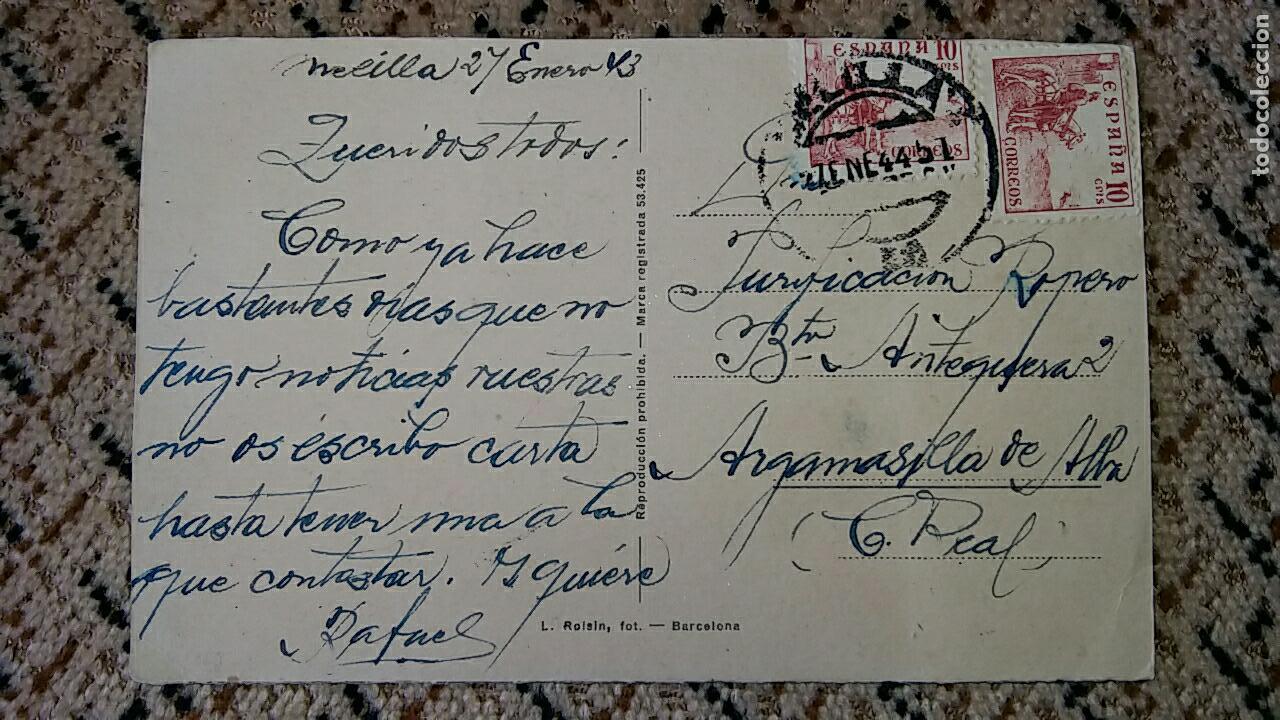 Melilla 27 Enero 43
Queridos todos:
Como ya hace
bastantes dias que no
tengo noticias vuestras
no os escribo carta
hasta tener una a la
que contestar. Os quiere
Rafael
Reproducción prohibida. — Marca registrada 53.425
L. Roisin, fot. — Barcelona
ESPAÑA 10
CTS
CORREOS
ESPAÑA 10
CTS
CORREOS
MELILLA
27 ENE 44
Purificacion Ropero
Bto Antequera 2
Argamasilla de Alba
(C. Real)
todocoleccion